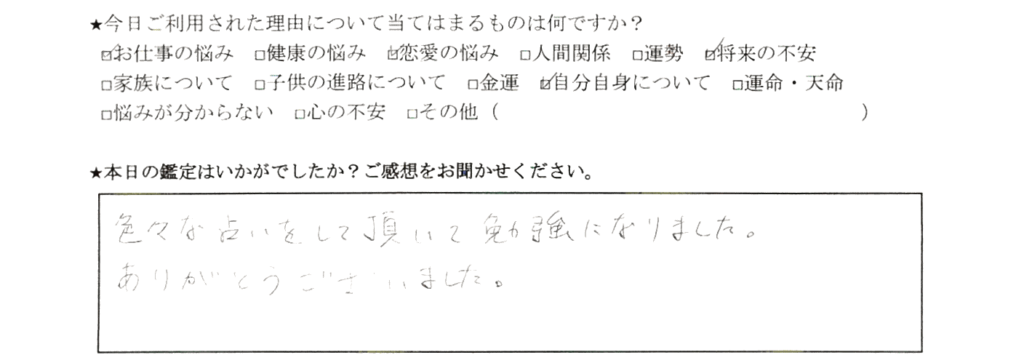 ★今日ご利用された理由について当てはまるものは何ですか？
☑お仕事の悩み □健康の悩み ☑恋愛の悩み □人間関係 □運勢 ☑将来の不安
□家族について □子供の進路について □金運 ☑自分自身について □運命・天命
□悩みが分からない □心の不安 □その他（ ）
★本日の鑑定はいかがでしたか？ご感想をお聞かせください。
色々な占いをして頂いて勉強になりました。
ありがとうございました。